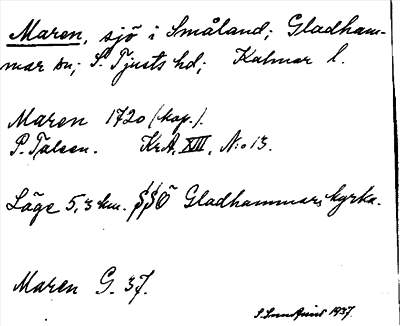 Maren, sjö i Småland; Gladham-
mar sn; S. Tjusts hd; Kalmar l.
Maren 1720 (kop.).
P. Talsen. KrA, XIII, N:o 13.
Läge 5,3 km. SSÖ Gladhammars kyrka.
Maren G. 37.
1937.